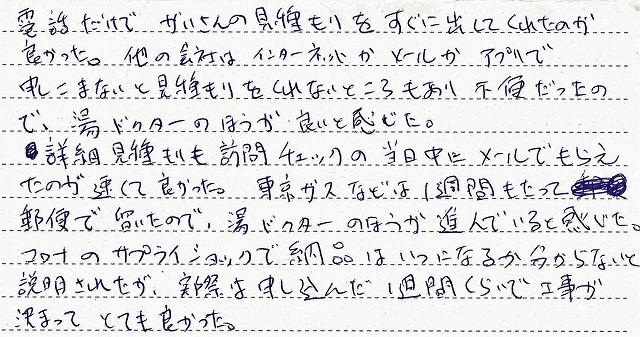 電話だけで がいさんの見積もりをすぐに出してくれたのが
良かった。他の会社は インターネットか メールか アプリで
申しこまないと見積もりをくれないところもあり 不便だったの
で、湯ドクターのほうが 良いと感じた。
詳細見積もりも 訪問チェックの 当日中に メールでもらえ
たのが 速くて 良かった。 東京ガスなどは 1週間もたって
郵便で 届いたので、湯ドクターのほうが 進んでいると感じた。
コロナの サプライショックで 納品はいつになるか分からないと
説明されたが、実際は申し込んだ 1週間くらいで 工事が
決まって とても良かった。